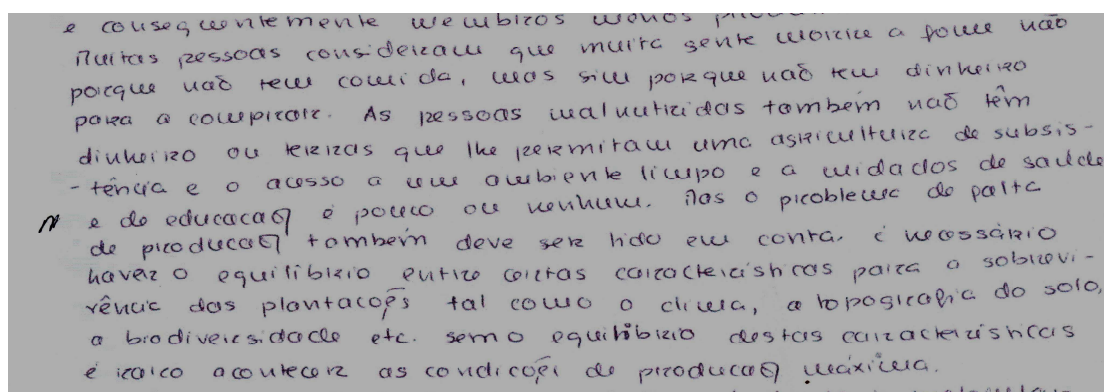 e consequentemente membros menos
Muitas pessoas consideram que muita gente morre a fome não
porque não tem comida, mas sim porque não tem dinheiro
para a comprar. As pessoas malnutridas também não têm
dinheiro ou terras que lhe permitam uma agricultura de subsis-
-tência e o acesso a um ambiente limpo e a cuidados de saúde
e de educacaõ é pouco ou nenhum. Mas o problema de falta
de producaõ também deve ser tido em conta. é necessário
haver o equilíbrio entre certas características para a sobrevi-
vência das plantacoẽs tal como o clima, a topografia do solo,
a biodiversidade etc. sem o equilíbrio destas características
é raro acontecer as condicoẽs de producaõ máxima.